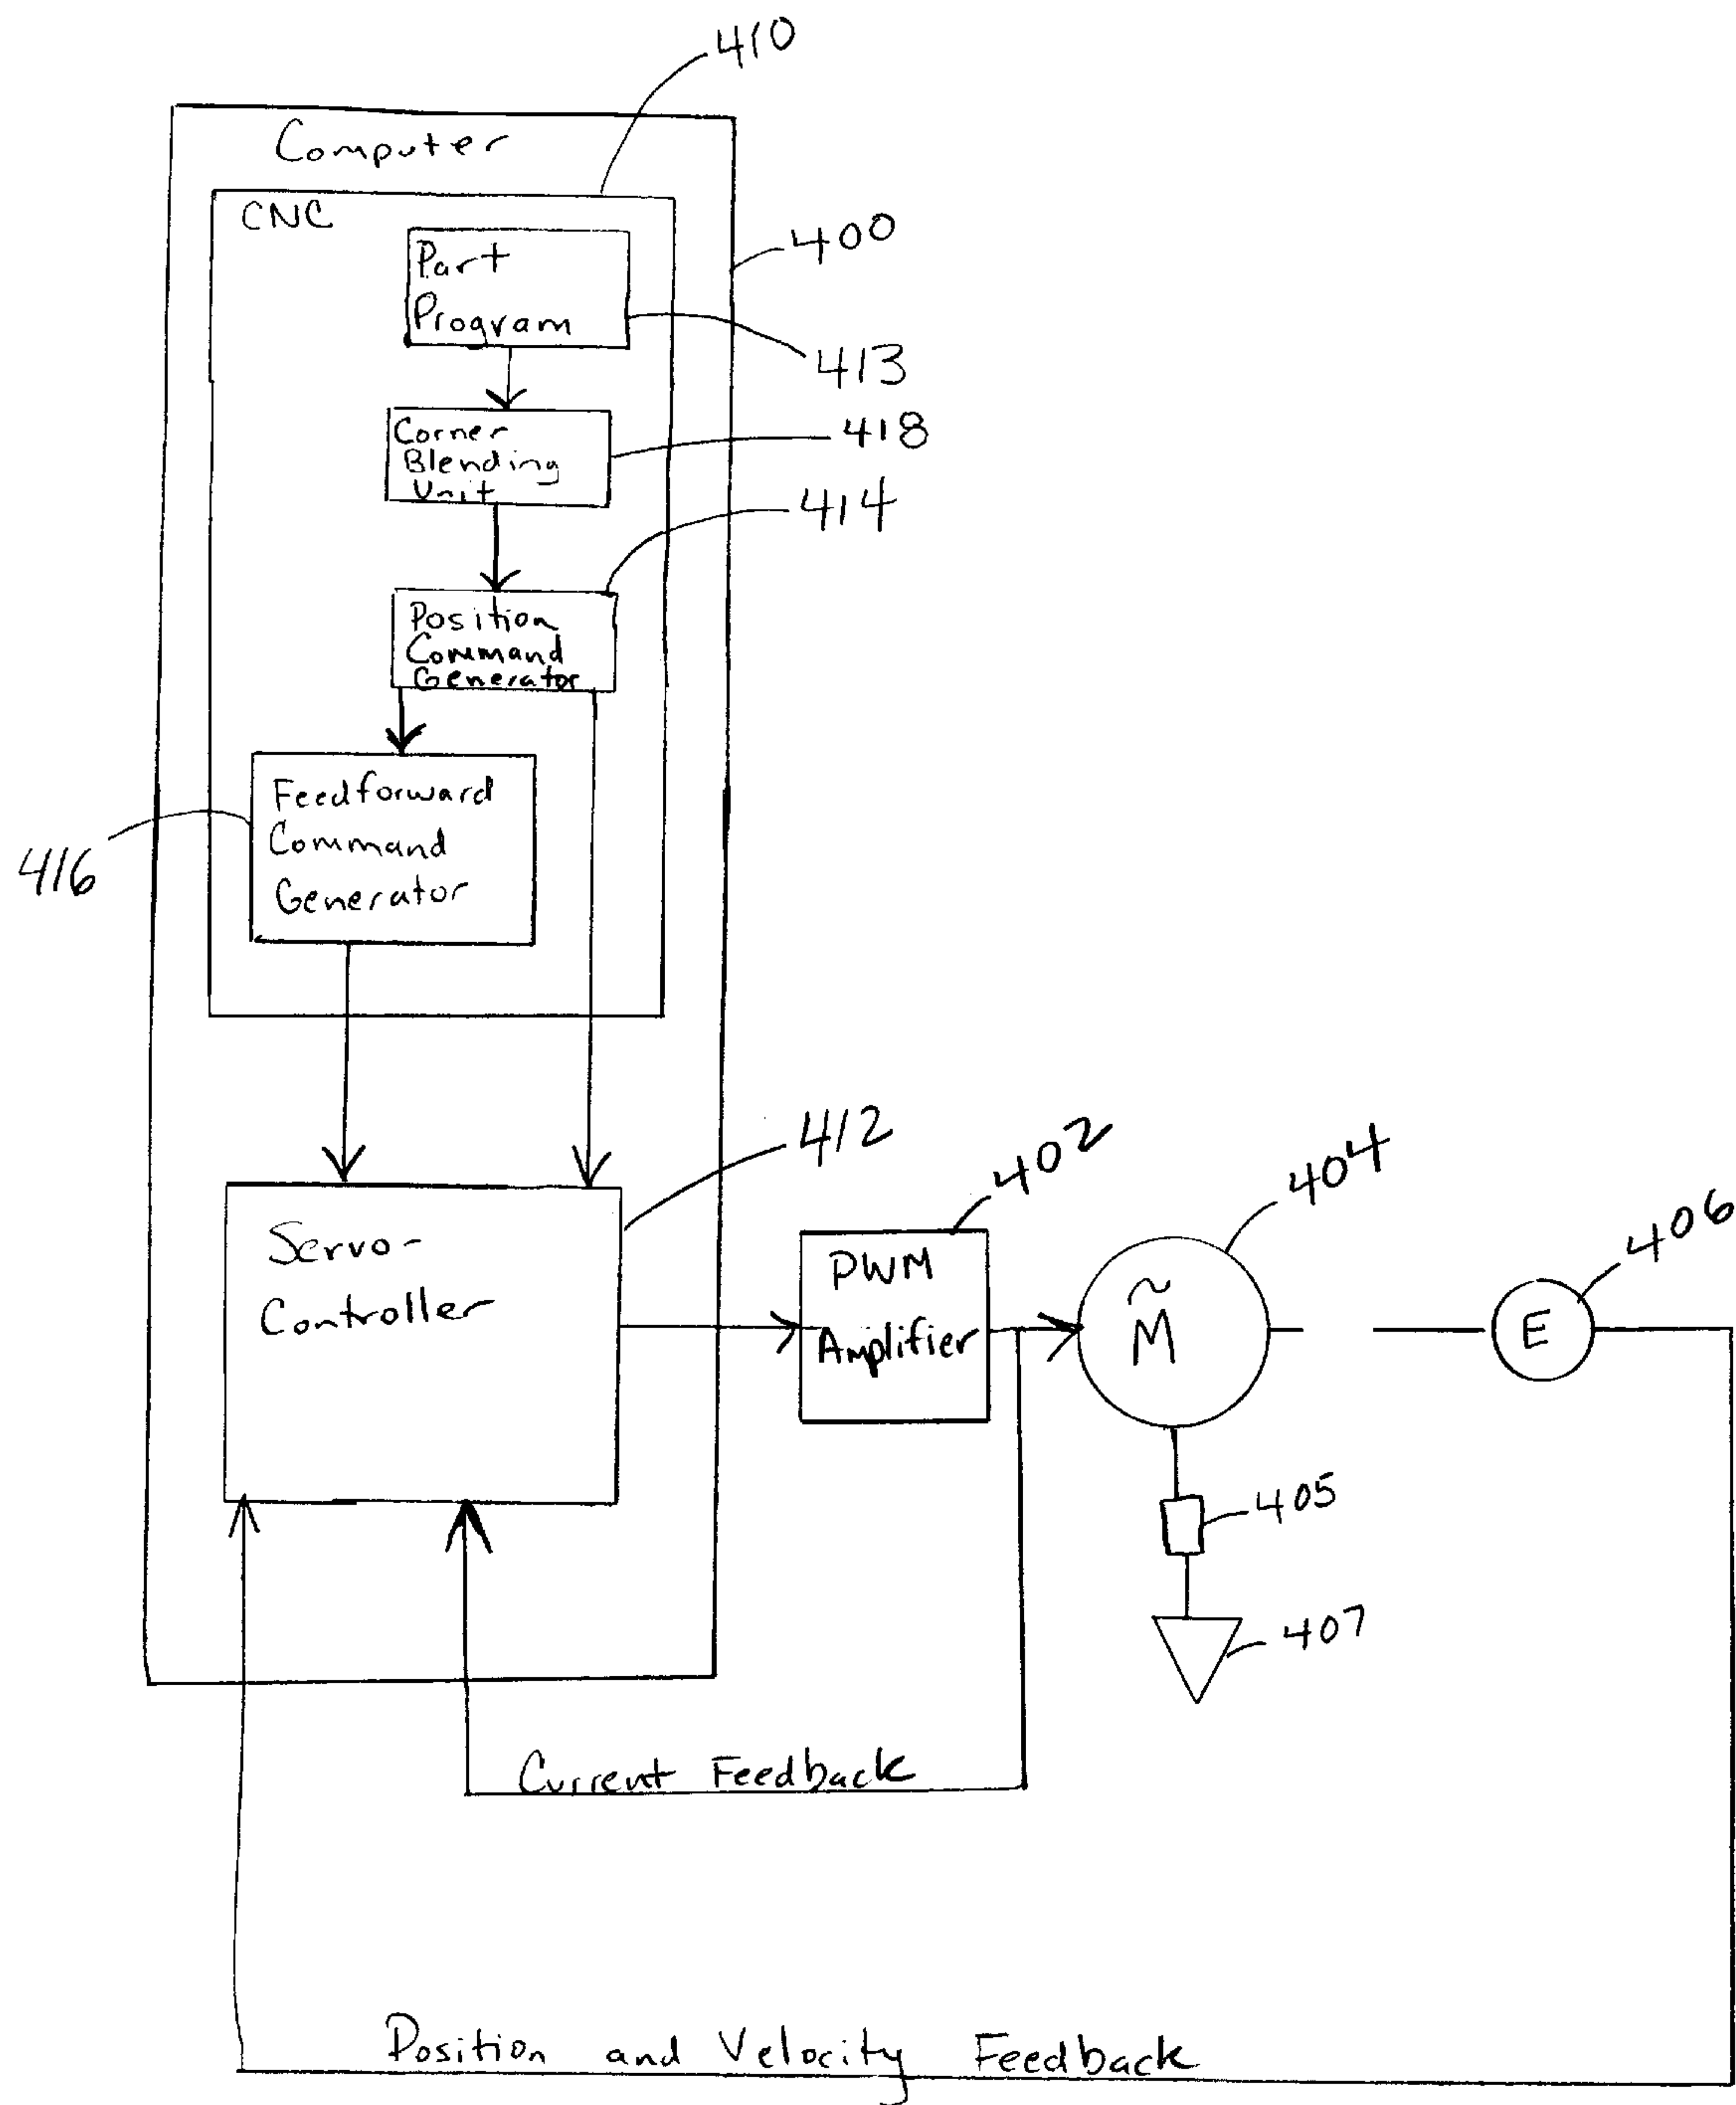 410
Computer
CNC
400
Part
Program
413
Corner
Blending
Unit
418
414
Position
Command
Generator
Feedforward
Command
Generator
416
412
402
404
406
Servo-
Controller
PWM
Amplifier
M̃
E
405
407
Current Feedback
Position and Velocity Feedback